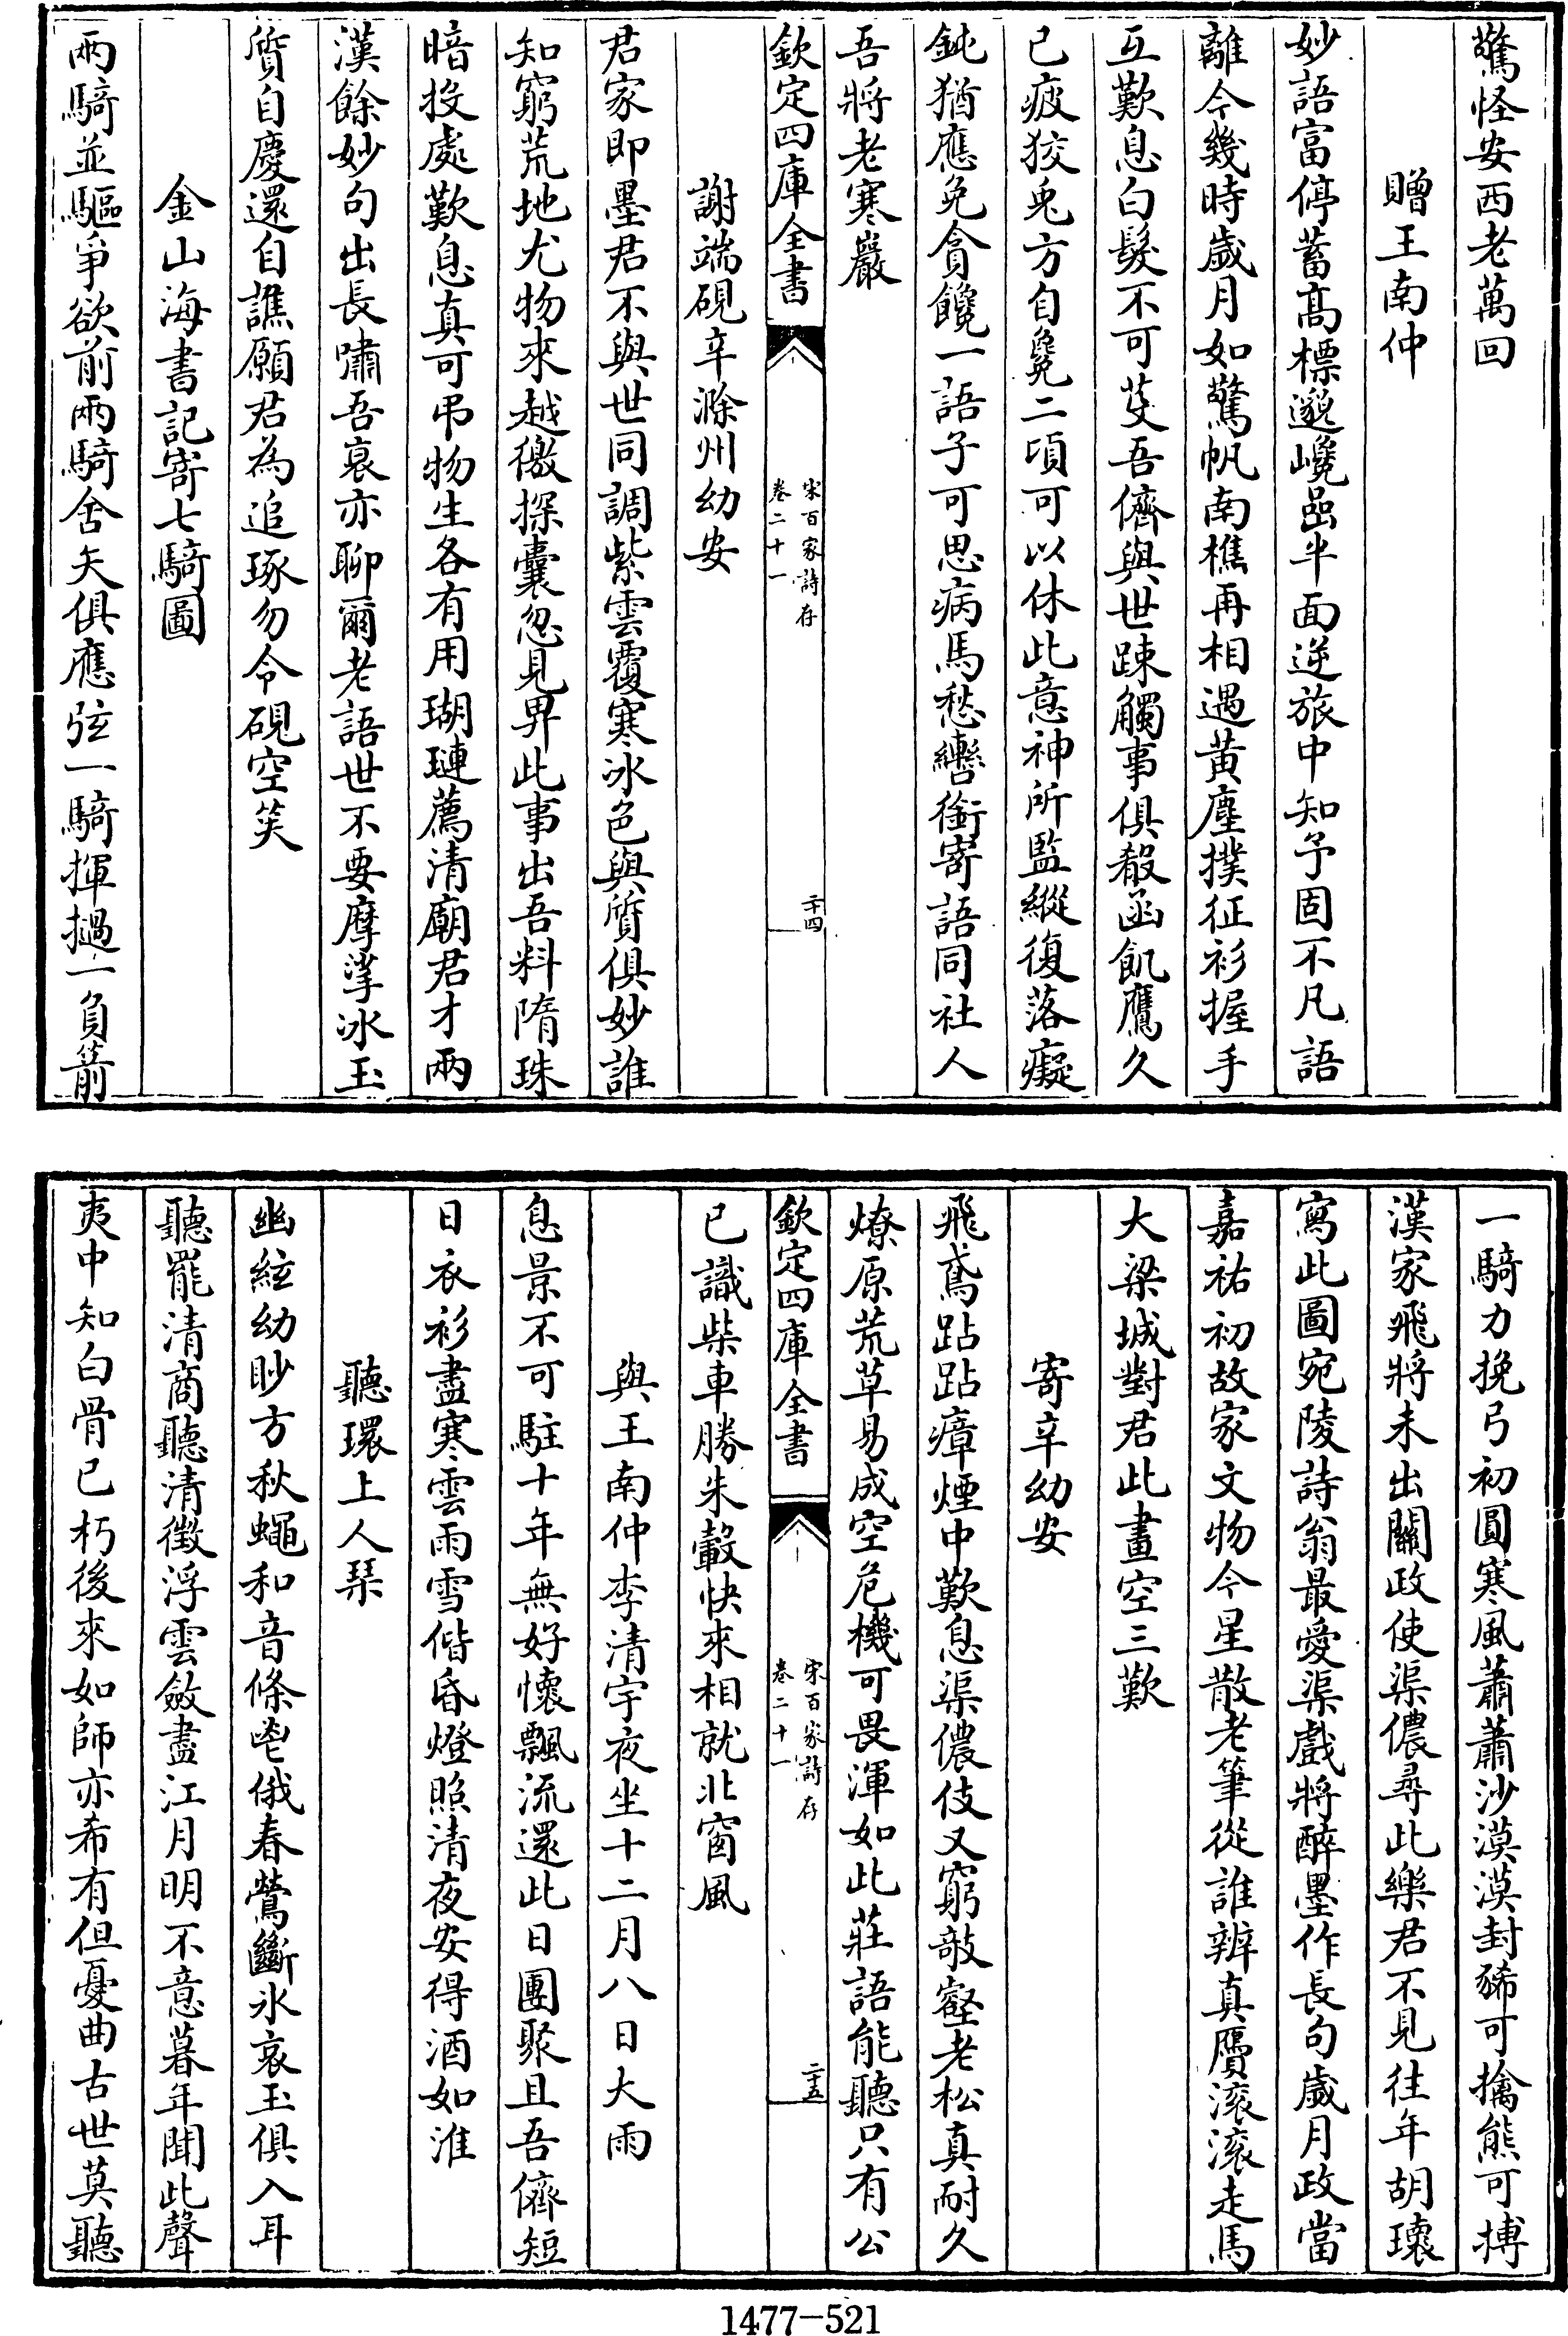 驚怪安西老萬回
贈王南仲
妙語富停蓄髙標邈巉嵒半面逆旅中知予固不凡語
離今幾時歲月如驚帆南樵再相遇黄塵撲征衫握手
互歎息白髮不可芟吾儕與世踈觸事俱殽函飢鷹久
已疲狡兎方自毚二頃可以休此意神所監縱復落癡
鈍猶應免貪饞一語子可思病馬愁轡銜寄語同社人
吾將老寒巖
欽定四庫全書
宋百家詩存
卷二十一
二十四
謝端硯辛滁州幼安
君家即墨君不與世同調紫雲覆寒冰色與質俱妙誰
知窮荒地尤物來越徼探囊忽見畀此事出吾料隋珠
暗投處歎息真可弔物生各有用瑚璉薦清廟君才兩
漢餘妙句出長嘯吾衰亦聊爾老語世不要摩挲冰玉
質自慶還自譙願君為追琢勿令硯空笑
金山海書記寄七騎圖
兩騎並驅爭欲前兩騎舍矢俱應弦一騎揮撾一負箭
一騎力挽弓初圓寒風蕭蕭沙漠漠封豨可擒熊可搏
漢家飛將未出關政使渠儂尋此樂君不見往年胡瓌
寫此圖宛陵詩翁最愛渠戲將醉墨作長句歲月政當
嘉祐初故家文物今星散老筆從誰辨真贗滚滚走馬
大梁城對君此畫空三歎
寄辛幼安
飛鳶跕跕瘴煙中歎息渠儂伎又窮敲壑老松真耐久
燎原荒草易成空危機可畏渾如此莊語能聽只有公
欽定四庫全書
宋百家詩存
卷二十一
二十五
已識柴車勝朱轂快來相就北窗風
與王南仲李清宇夜坐十二月八日大雨
息景不可駐十年無好懷飄流還此日團聚且吾儕短
日衣衫盡寒雲雨雪偕昏燈照清夜安得酒如淮
聽環上人琴
幽絃幼眇方秋蠅和音條鬯俄春鶯斷冰哀玉俱入耳
聽罷清商聽清徵浮雲斂盡江月明不意暮年聞此聲
夷中知白骨已朽後來如師亦希有但憂曲古世莫聽
1477-521